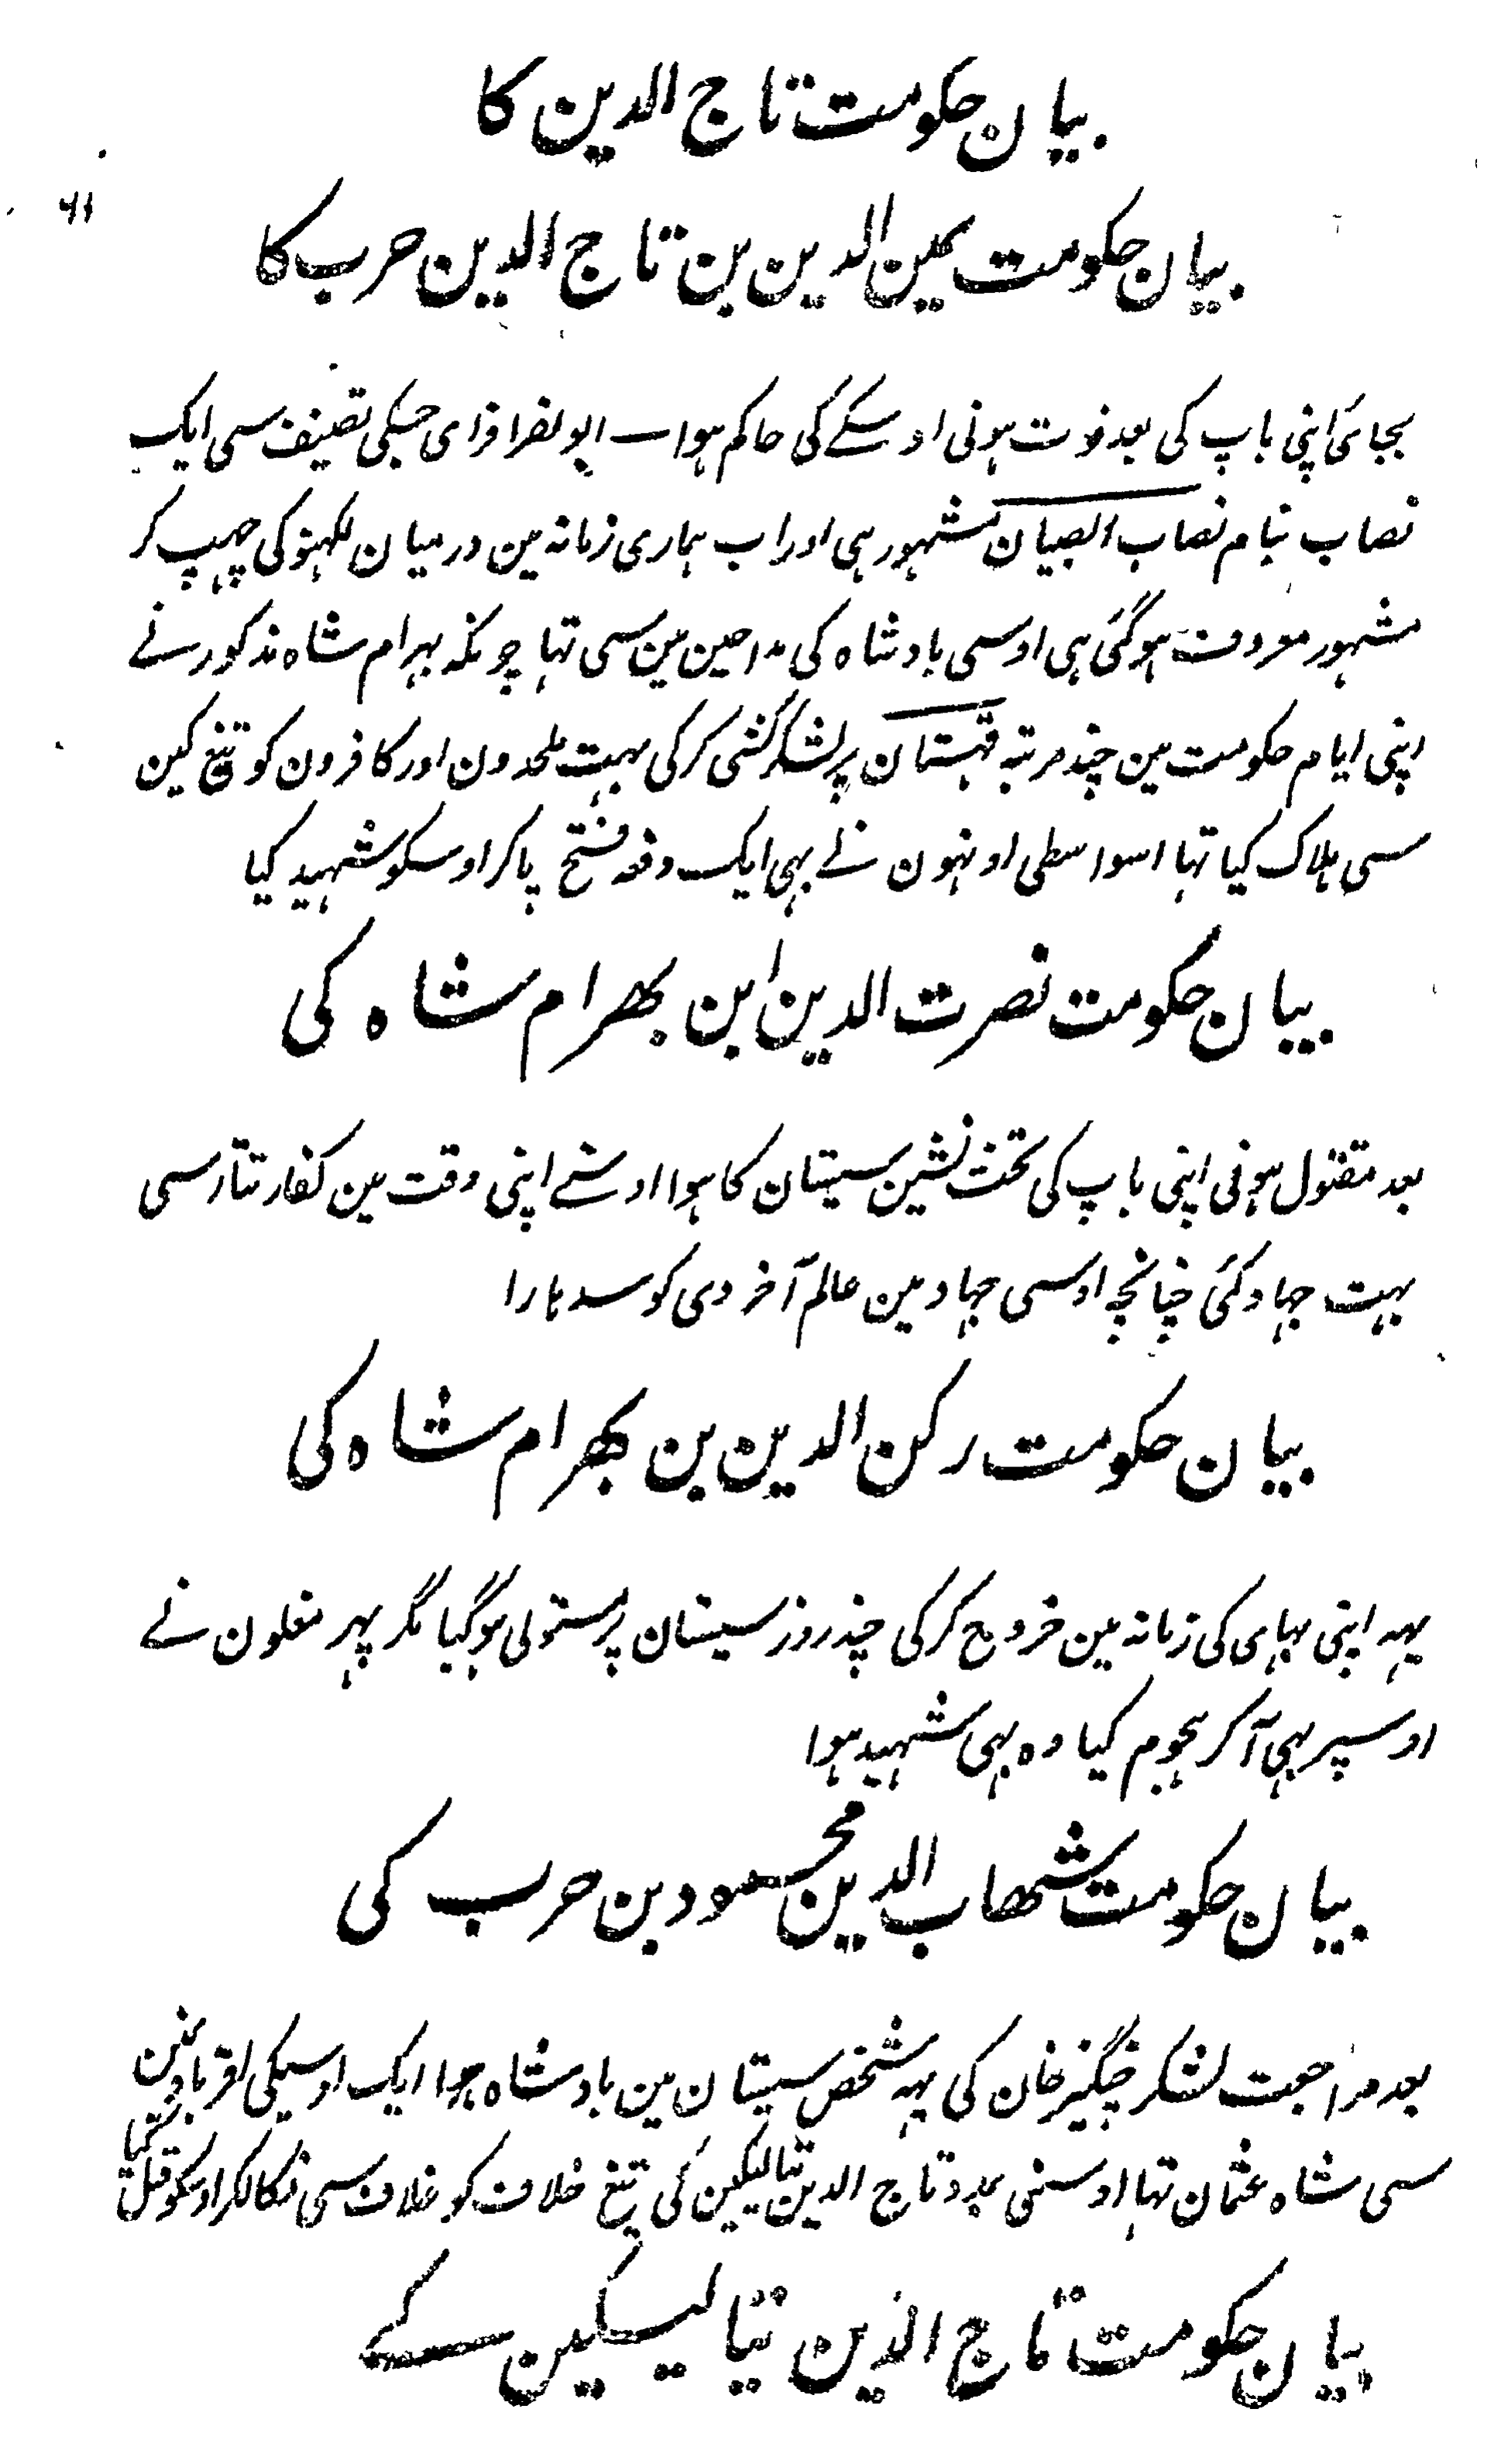 بیان حکومت تاج الدین کا
۶۱
بیان حکومت یمین الدین بن تاج الدین حرب کا
بجائی اپنی باپ کی بعد فوت ہونی اوسکے کی حاکم ہوا ابو نصر افرای جسکی تصنیف سی ایک
نصاب بنام نصاب الصبیان مشہور ہی اور اب ہماری زمانہ مین درمیان لکھنو کی چھپ کر
مشہور معروف ہو گئی ہی اوسی بادشاہ کی مداحین مین سی تہا چونکہ بہرام شاہ مذکور نے
اپنی ایام حکومت مین چند مرتبہ قہستان پر لشکر کشی کر کی بہت ملحدون اور کافرون کو تیغ کین
سی ہلاک کیا تہا اسواسطی اونہون نے بہی ایک دفعہ فتح پاکر اوسکو شہید کیا
بیان حکومت نصرت الدین ابن بھرام شاہ کی
بعد مقتول ہونی اپنی باپ کی تخت نشین سیستان کا ہوا اوسنے اپنی وقت مین کفار تتار سی
بہت جہاد کئی چنانچہ اوسی جہاد مین عالم آخروی کو سدہارا
بیان حکومت رکن الدین بن بھرام شاہ کی
یہہ اپنی بہای کی زمانہ مین خروج کر کی چند روز سیستان پر مستولی ہو گیا مگر پہر مغلون نے
اوسپر بہی آکر ہجوم کیا وہ بہی شہید ہوا
بیان حکومت شھاب الدین محمود بن حرب کی
بعد مراجعت لشکر چنگیز خان کی یہہ شخص سیستان مین بادشاہ ہوا ایک اوسیکی اقربا مین
سی شاہ عثمان تہا اوسنی بمدد تاج الدین تیالیکین کی تیغ خلاف کو غلاف سی نکالکر اوسکو قتل کیا
بیان حکومت تاج الدین تیالیکین کے